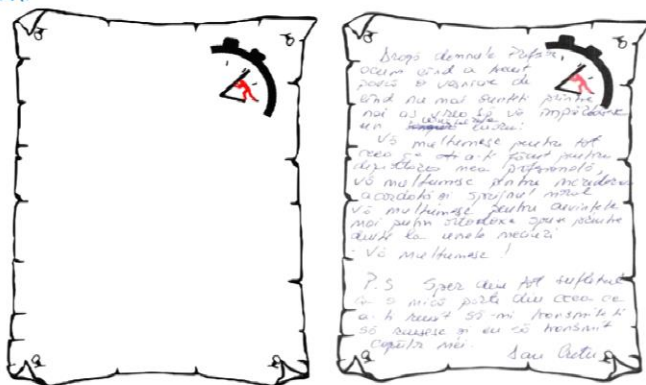 Dragă domnule
acum când a trecut
parcă o veșnicie de
când nu mai sunteți printre
noi aș vrea să vă
un lucru:
Vă mulțumesc pentru tot
ceea ce a-ți făcut pentru
mea profesională,
vă mulțumesc pentru încrederea
acordată și sprijinul moral
vă mulțumesc pentru cuvintele
mai puțin ortodoxe spuse printre
dinți la unele meciuri
Vă mulțumesc!
P.S Sper din tot sufletul
ca o mică parte din ceea ce
a-ți reușit să-mi transmiteți
să reușesc și eu să transmit
copiilor mei.
Dan